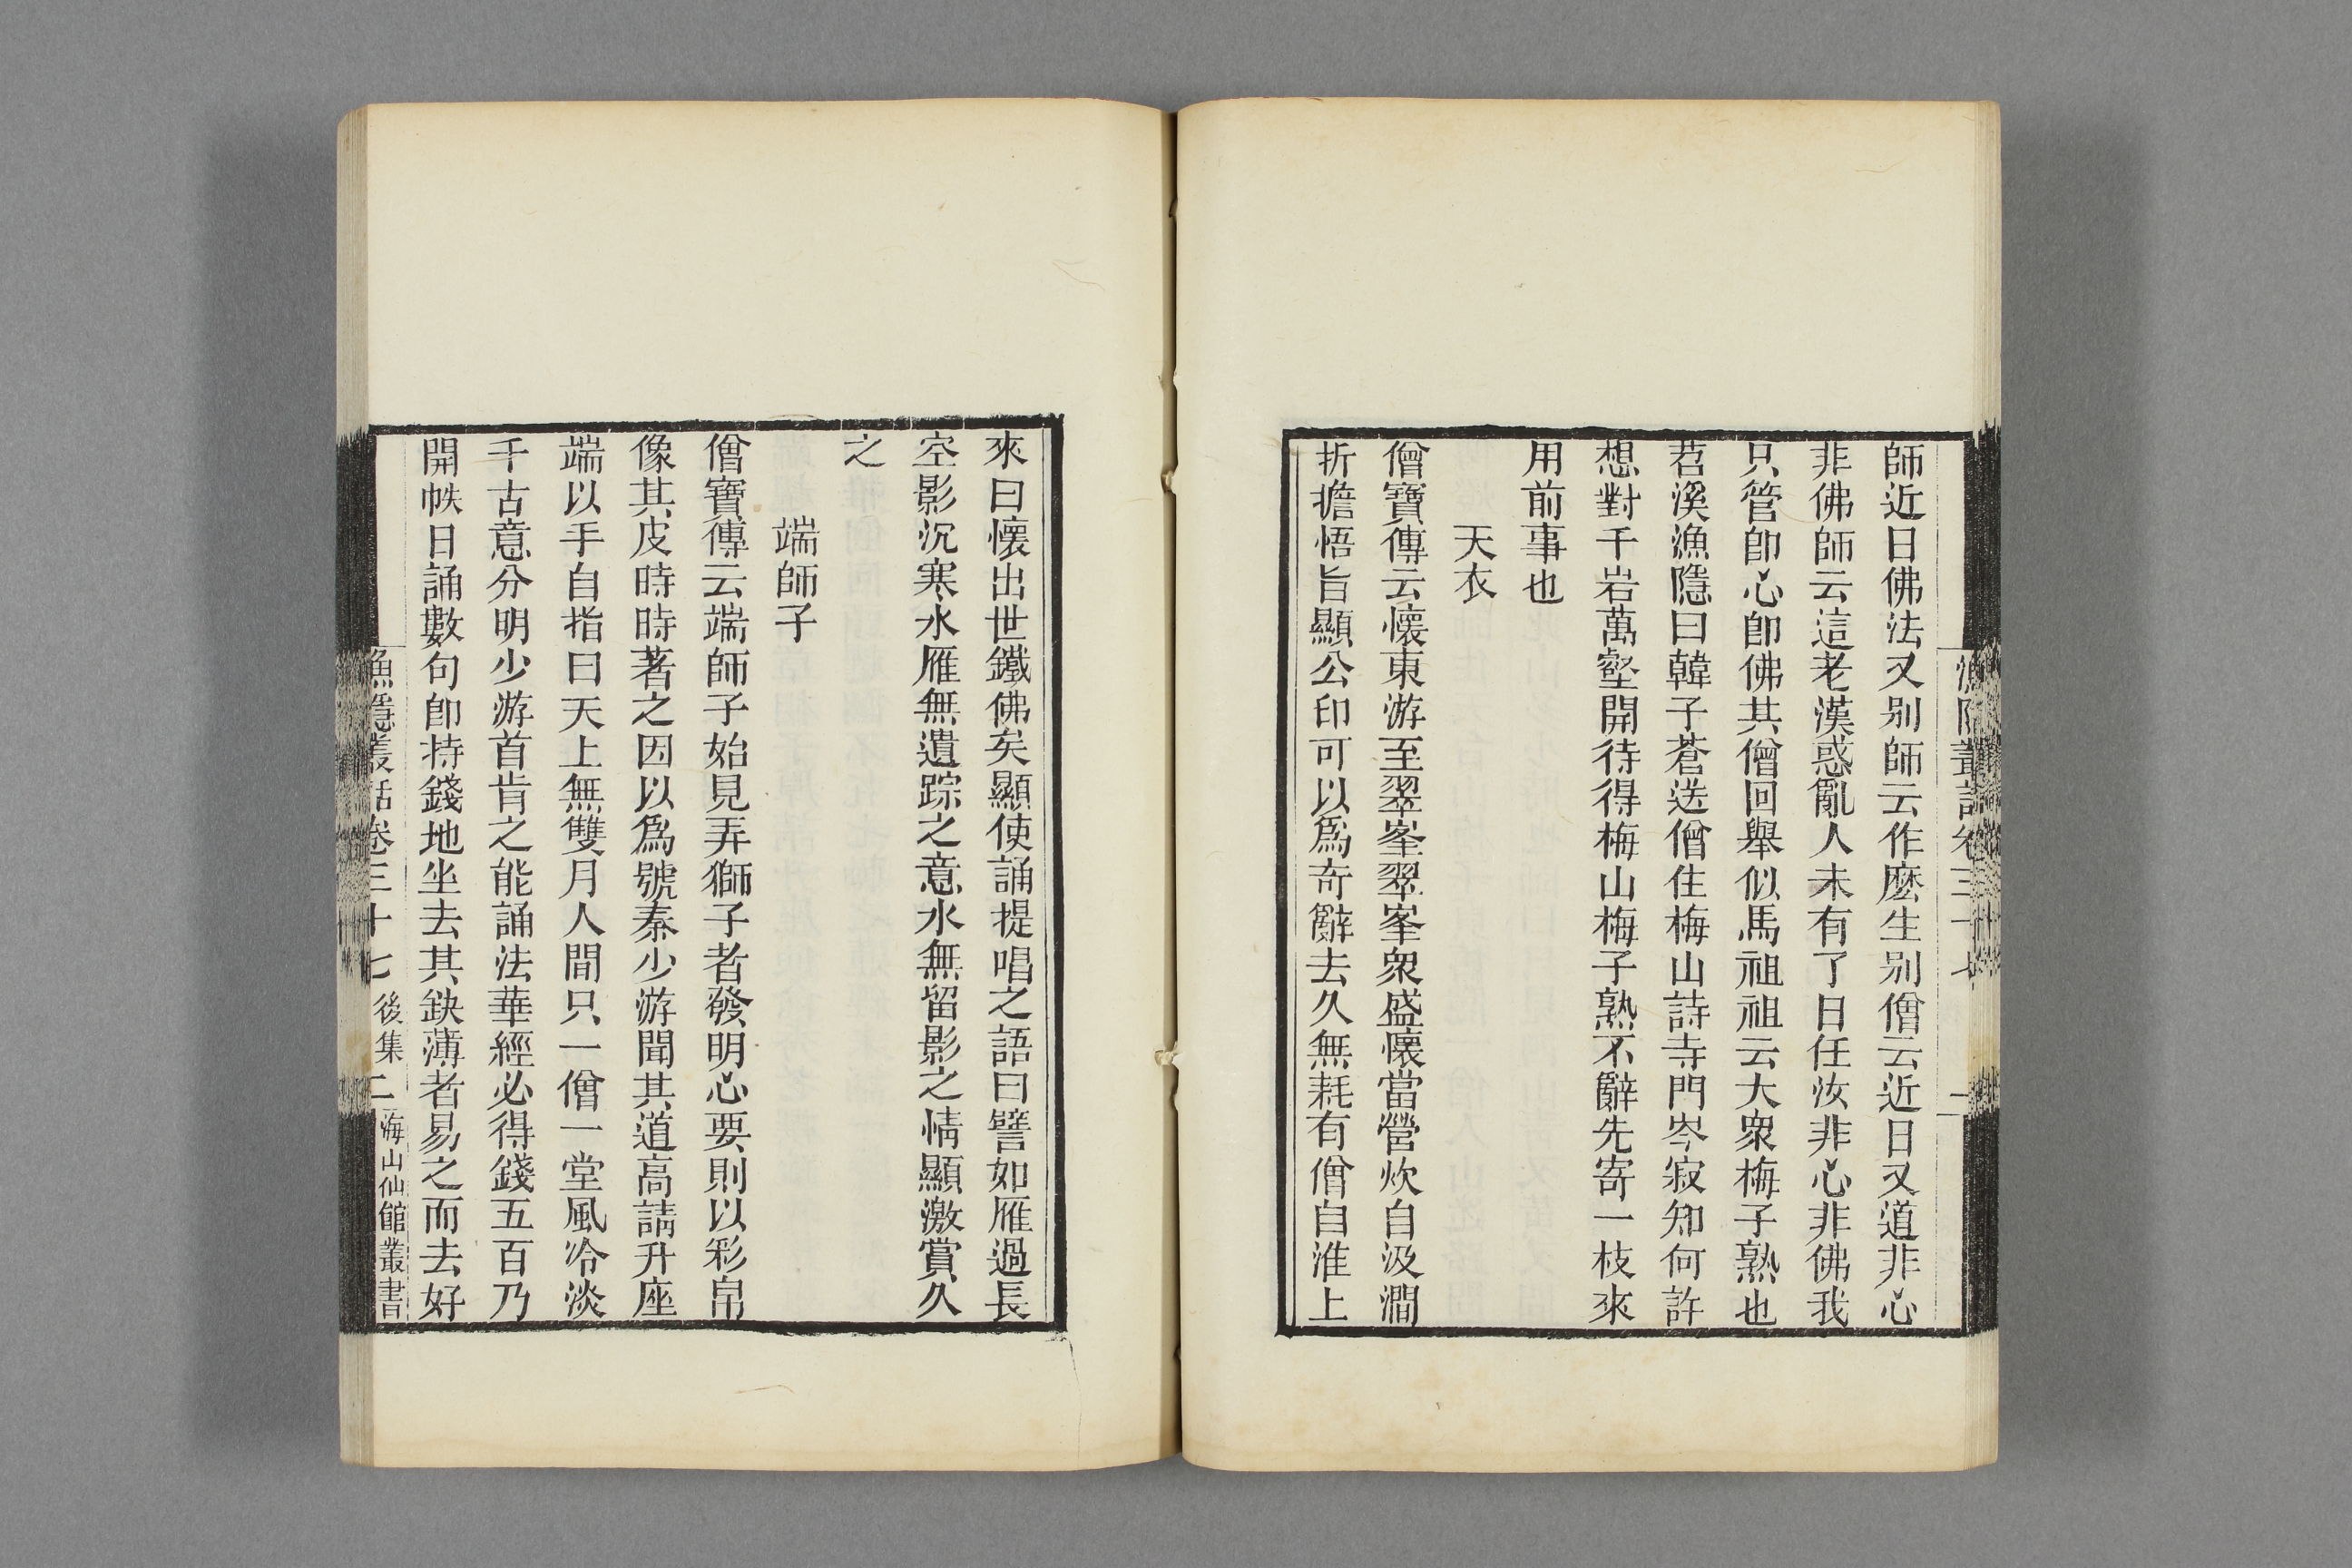 漁隱叢話卷三十七
師近日佛法又别師云作麽生别僧云近日又道非心
非佛師云這老漢惑亂人未有了日任汝非心非佛我
只管卽心卽佛其僧回舉似馬祖祖云大衆梅子熟也
苕溪漁隱曰韓子蒼送僧住梅山詩寺門岑寂知何許
想對千岩萬壑開待得梅山梅子熟不辭先寄一枝來
用前事也
天衣
僧寶傳云懷東游至翠峯翠峯衆盛懷當營炊自汲澗
折擔悟旨顯公印可以爲奇辭去久無耗有僧自淮上
來曰懷出世鐵佛矣顯使誦提唱之語曰譬如雁過長
空影沉寒水雁無遺踪之意水無留影之情顯激賞久
之
端師子
僧寶傳云端師子始見弄獅子者發明心要則以彩帛
像其皮時時著之因以爲號秦少游聞其道高請升座
端以手自指曰天上無雙月人間只一僧一堂風冷淡
千古意分明少游首肯之能誦法華經必得錢五百乃
開帙日誦數句卽持錢地坐去其缺薄者易之而去好
漁隱叢話卷三十七 後集 二 海山仙館叢書